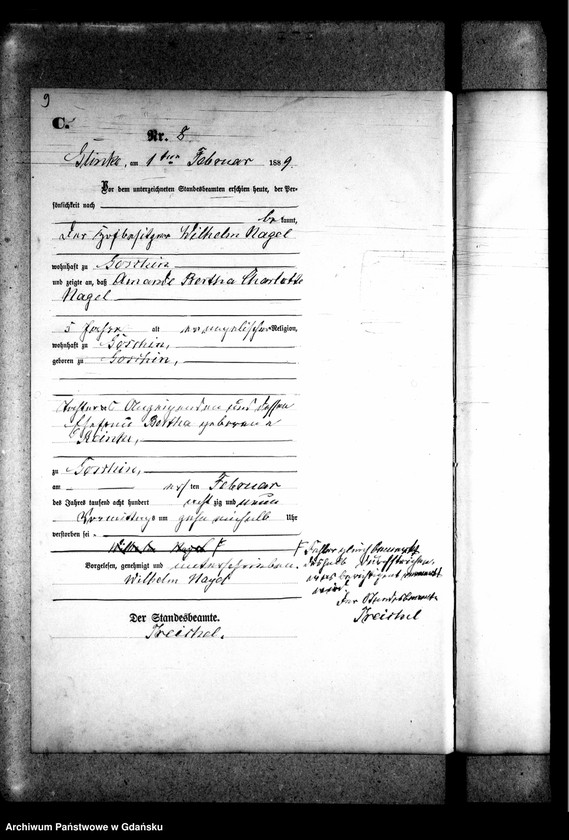 9
C.
Nr. 8
Glinke, am 1ten Februar 1889.
Vor dem unterzeichneten Standesbeamten erschien heute, der Per-
sönlichkeit nach
be kannt,
der Hofbesitzer Wilhelm Nagel
wohnhaft zu Goschin
und zeigte an, daß Amande Bertha Charlotte
Nagel
5 Jahre alt evangelischer Religion,
wohnhaft zu Goschin,
geboren zu Goschin,
Tochter des Anzeigenden und dessen
Ehefrau Bertha geborene
Reinke,
zu Goschin,
am ersten Februar
des Jahres tausend acht hundert acht zig und neun
Vormittags um zehn einhalb Uhr
verstorben sei
Wilhelm Nagel
Vorgelesen, genehmigt und unterschrieben.
Wilhelm Nagel
Der Standesbeamte.
Treichel.
Der Standesbeamte
Treichel
Archiwum Państwowe w Gdańsku